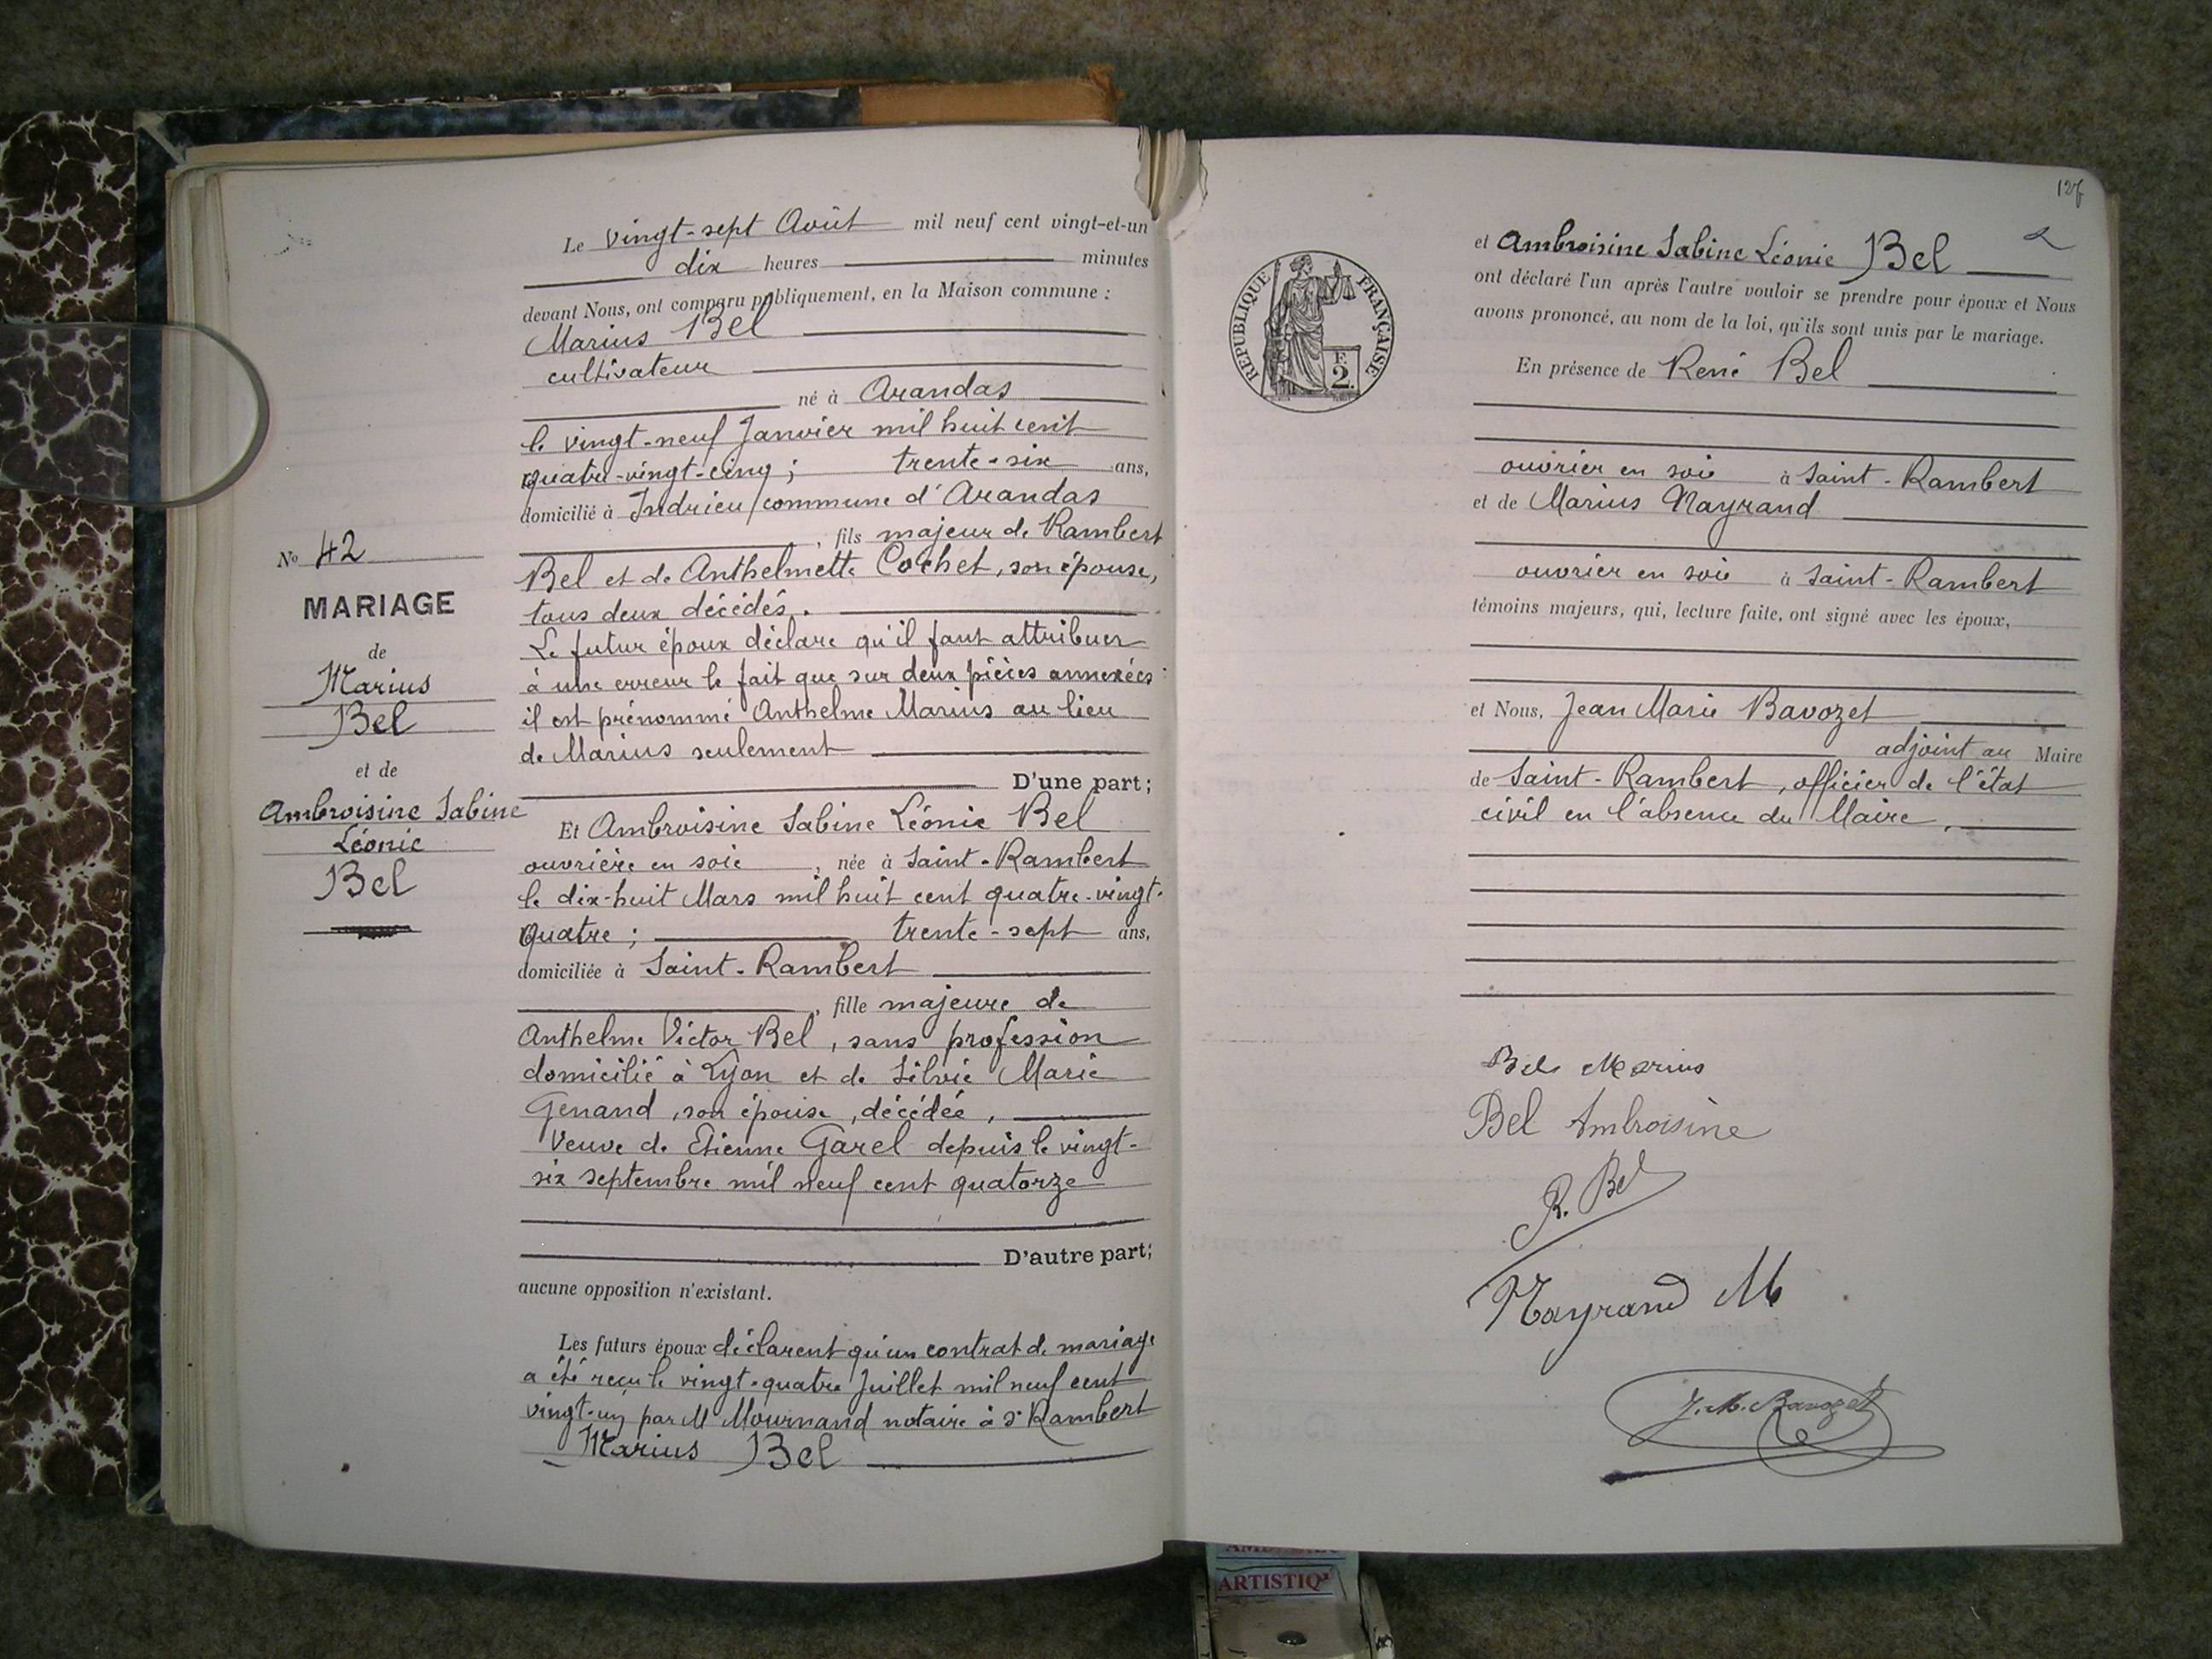 Le vingt-sept Août mil neuf cent vingt-et-un
dix heures minutes
devant Nous, ont comparu publiquement, en la Maison commune :
Marius Bel
cultivateur
né à Arandas
le vingt-neuf Janvier mil huit cent
quatre-vingt-cinq ; trente-six ans,
domicilié à Indrieu commune d'Arandas
, fils majeur de Rambert
Bel et de Anthelmette Cochet, son épouse,
tous deux décédés.
Le futur époux déclare qu'il faut attribuer
à une erreur le fait que sur deux pièces annexées
il est prénommé Anthelme Marius au lieu
de Marius seulement
D'une part;
Et Ambroisine Sabine Léonie Bel
ouvrière en soie, née à Saint-Rambert
le dix-huit Mars mil huit cent quatre-vingt-
quatre ; trente-sept ans,
domiciliée à Saint-Rambert
, fille majeure de
Anthelme Victor Bel, sans profession
domicilié à Lyon et de Silvie Marie
Genand, son épouse, décédée,
Veuve de Etienne Garel depuis le vingt-
six septembre mil neuf cent quatorze
D'autre part;
aucune opposition n'existant.
Les futurs époux déclarent qu'un contrat de mariage
a été reçu le vingt-quatre Juillet mil neuf cent
vingt-un par Me Mournand notaire à St Rambert
Marius Bel
No 42
MARIAGE
de
Marius
Bel
et de
Ambroisine Sabine
Léonie
Bel
REPUBLIQUE FRANÇAISE
F.
2.
et Ambroisine Sabine Léonie Bel
ont déclaré l'un après l'autre vouloir se prendre pour époux et Nous
avons prononcé, au nom de la loi, qu'ils sont unis par le mariage.
En présence de René Bel
ouvrier en soie à Saint-Rambert
et de Marius Nayrand
ouvrier en soie à Saint-Rambert
témoins majeurs, qui, lecture faite, ont signé avec les époux,
et Nous, Jean Marie Bavozet
adjoint au Maire
de Saint-Rambert, officier de l'état
civil en l'absence du Maire,
Bel Marius
Bel Ambroisine
R. Bel
Nayrand M
J.M. Bavozet
ARTISTIQ